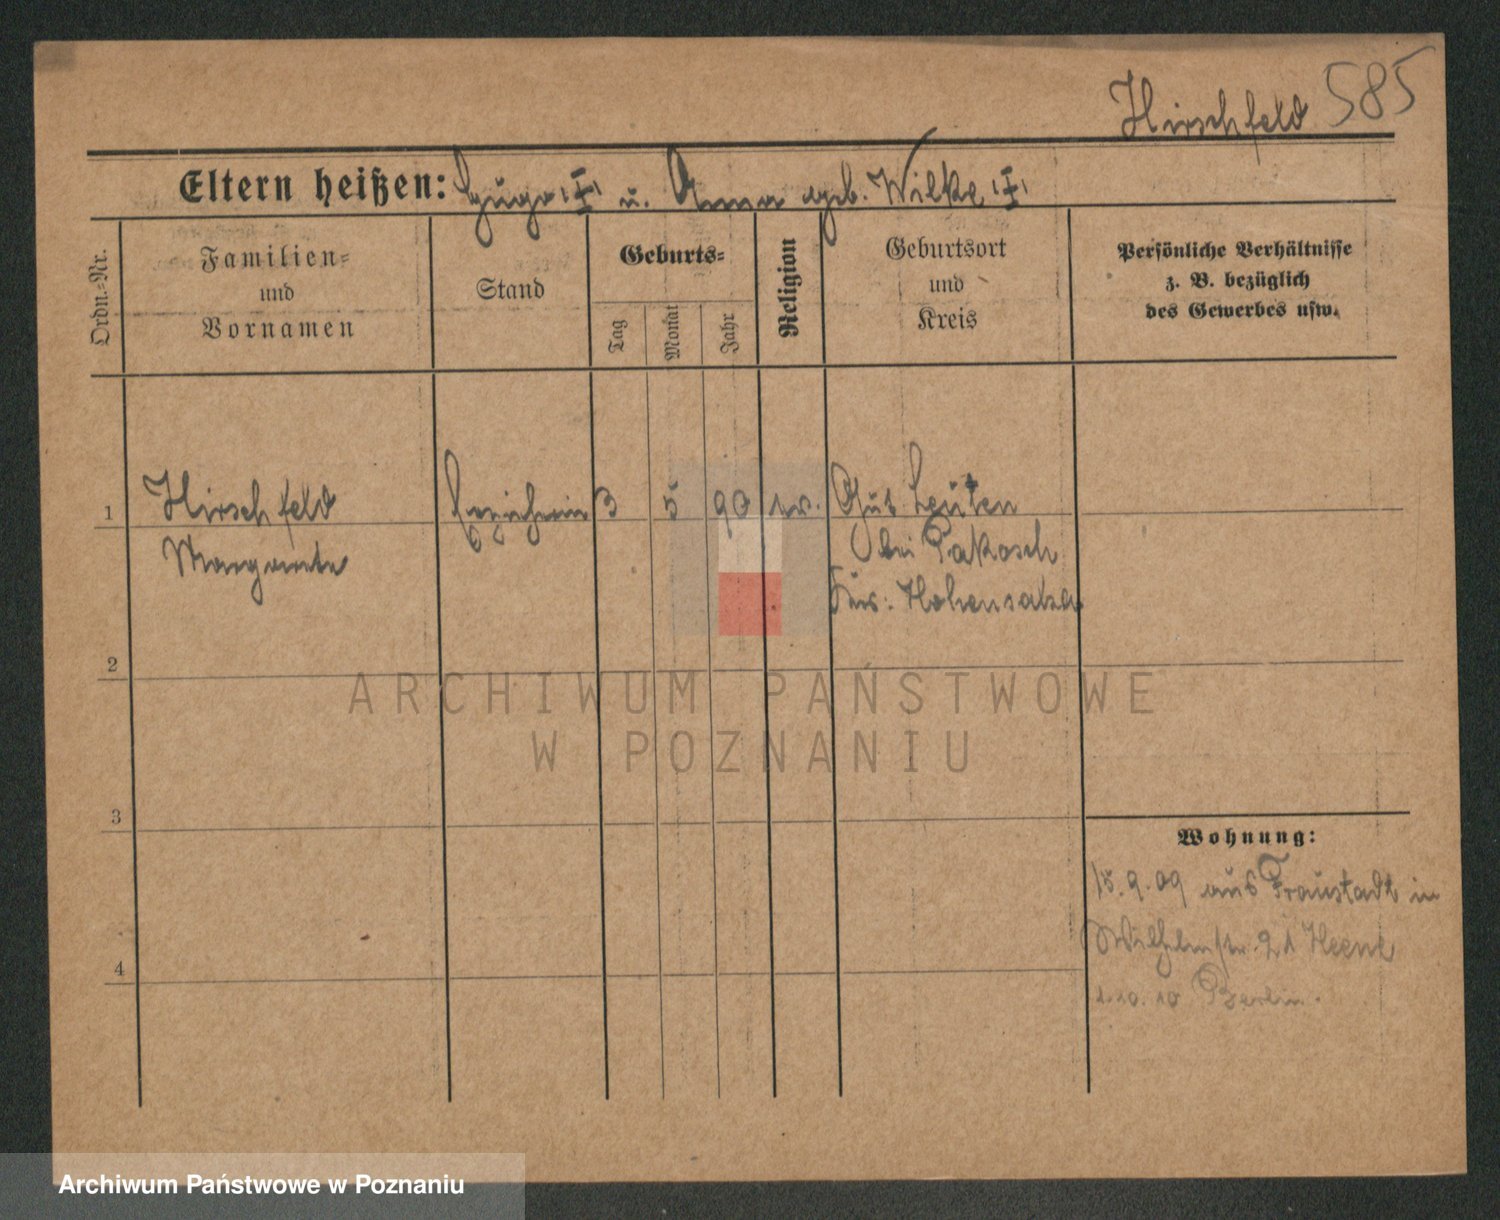 Hirschfeld 585
Eltern heißen: Hugo "I" u. Anna geb. Wilke "I"
Ordn.-Nr.
Familien-
und
Vornamen
Stand
Geburts-
Tag
Monat
Jahr
Religion
Geburtsort
und
Kreis
Persönliche Verhältnisse
z. B. bezüglich
des Gewerbes usw.
1 Hirschfeld 3 5 90 ev. Gut Leuten
Margarete bei Pakosch
Krs: Hohensalza
2
ARCHIWUM PAŃSTWOWE
W POZNANIU
3
Wohnung:
15.9.09 aus Fraustadt in
Wilhelmstr. 21
4
1.10.10 Berlin.
Archiwum Państwowe w Poznaniu